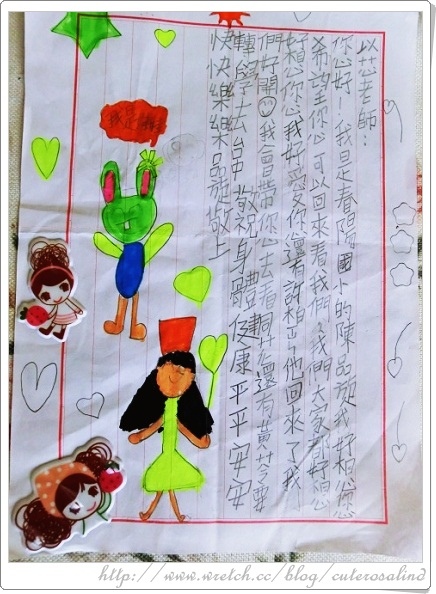 老師：
你好！我是春陽國小的陳品 我好想您
希望您可以回來看我們、我們大家都好想
好想你您我好愛你還有許柏 他回來了我
們好開 我會帶您去看 花還有黃苓要
轉學去台中 敬祝身體健康平平安安
快快樂樂品 敬上
我是
http://www.wretch.cc/blog/cuterosalind